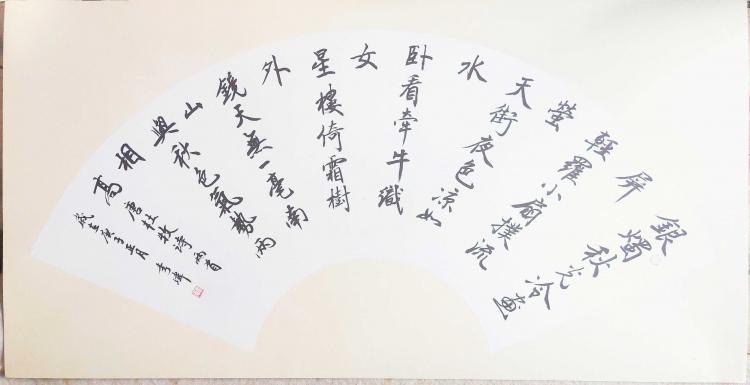 銀燭秋光冷畫
屏
輕羅小扇撲流
螢
天街夜色涼如
水
卧看牽牛織
女
星樓倚霜樹
外
鏡天無一毫南
山
與秋色氣勢兩
相
高
唐杜牧詩兩首
歲在庚子 月 李